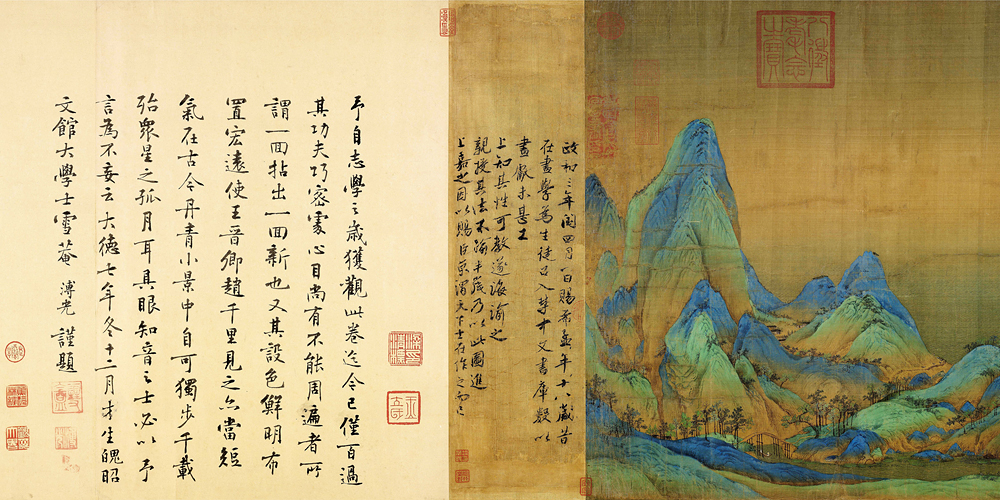 八徵耄念之寶
政和三年閏四月一日賜希孟年十八歲昔
在畫學為生徒召入禁中文書庫數以
畫獻未甚工
上知其性可教遂誨諭之
親授其法不踰半歲乃以此圖進
上嘉之因以賜臣京謂天下士在作之而已
予自志學之歲獲觀此卷迄今已僅百過
其功夫巧密處心目尚有不能周遍者所
謂一囬拈出一囬新也又其設色鮮明布
置宏遠使王晉卿趙千里見之亦當短
氣在古今丹青小景中自可獨步千載
殆衆星之孤月耳具眼知音之士必以予
言為不妄云大德七年冬十二月才生魄昭
文館大學士雪菴溥光謹題